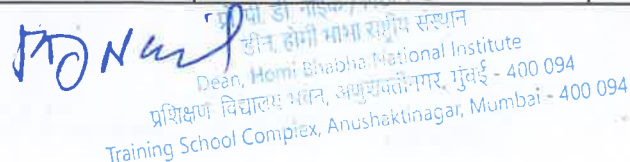 प्रो. पी. डी. नाईक /
डीन, होमी भाभा राष्ट्रीय संस्थान
Dean, Homi Bhabha National Institute
प्रशिक्षण विद्यालय भवन, अणुशक्तीनगर, मुंबई - 400 094
Training School Complex, Anushaktinagar, Mumbai - 400 094